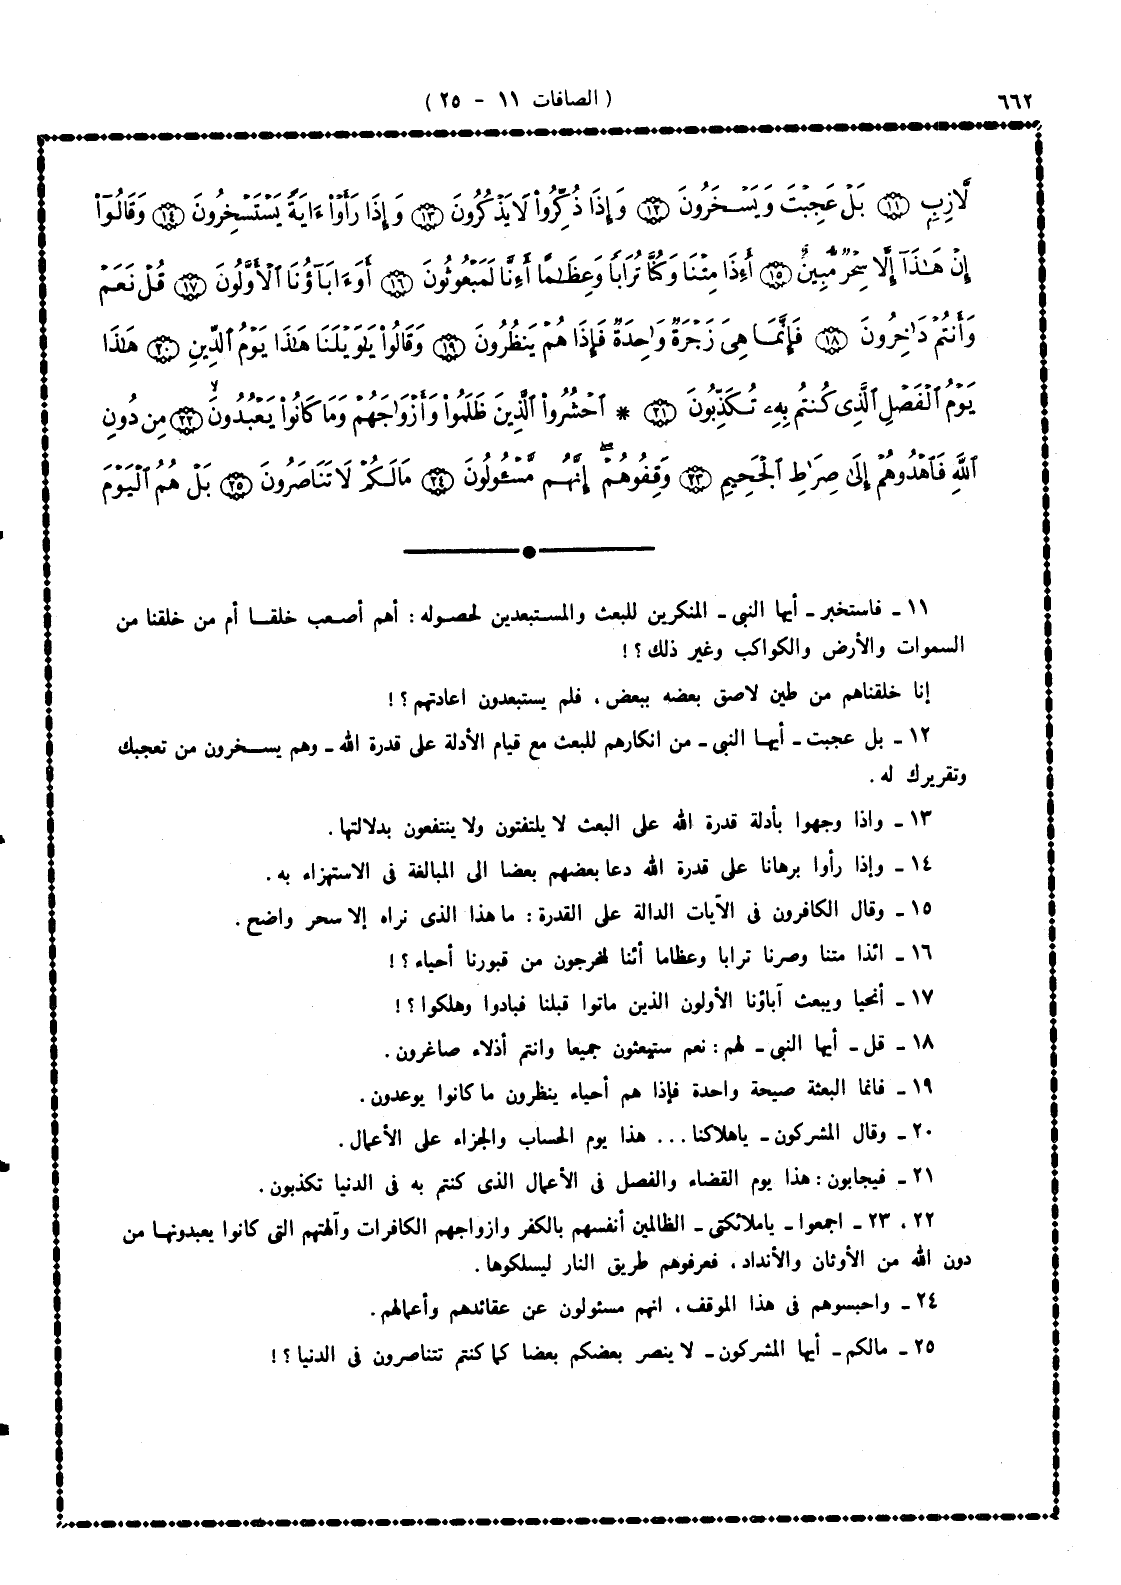 ٦٦٢
( الصافات ١١ - ٢٥ )
لَّازِبٍ ۝١١ بَلْ عَجِبْتَ وَيَسْخَرُونَ ۝١٢ وَإِذَا ذُكِّرُوا۟ لَا يَذْكُرُونَ ۝١٣ وَإِذَا رَأَوْا۟ ءَايَةً يَسْتَسْخِرُونَ ۝١٤ وَقَالُوٓا۟
إِنْ هَـٰذَآ إِلَّا سِحْرٌ مُّبِينٌ ۝١٥ أَءِذَا مِتْنَا وَكُنَّا تُرَابًا وَعِظَـٰمًا أَءِنَّا لَمَبْعُوثُونَ ۝١٦ أَوَءَابَآؤُنَا ٱلْأَوَّلُونَ ۝١٧ قُلْ نَعَمْ
وَأَنتُمْ دَٰخِرُونَ ۝١٨ فَإِنَّمَا هِىَ زَجْرَةٌ وَٰحِدَةٌ فَإِذَا هُمْ يَنظُرُونَ ۝١٩ وَقَالُوا۟ يَـٰوَيْلَنَا هَـٰذَا يَوْمُ ٱلدِّينِ ۝٢٠ هَـٰذَا
يَوْمُ ٱلْفَصْلِ ٱلَّذِى كُنتُم بِهِۦ تُكَذِّبُونَ ۝٢١ * ٱحْشُرُوا۟ ٱلَّذِينَ ظَلَمُوا۟ وَأَزْوَٰجَهُمْ وَمَا كَانُوا۟ يَعْبُدُونَ ۝٢٢ مِن دُونِ
ٱللَّهِ فَٱهْدُوهُمْ إِلَىٰ صِرَٰطِ ٱلْجَحِيمِ ۝٢٣ وَقِفُوهُمْ ۖ إِنَّهُم مَّسْـُٔولُونَ ۝٢٤ مَا لَكُمْ لَا تَنَاصَرُونَ ۝٢٥ بَلْ هُمُ ٱلْيَوْمَ
١١ ـ فاستخبر ـ أيها النبى ـ المنكرين للبعث والمستبعدين لحصوله : أهم أصعب خلقا أم من خلقنا من
السموات والأرض والكواكب وغير ذلك ؟ !
إنا خلقناهم من طين لاصق بعضه ببعض ، فلم يستبعدون اعادتهم ؟ !
١٢ ـ بل عجبت ـ أيها النبى ـ من انكارهم للبعث مع قيام الأدلة على قدرة الله ـ وهم يسخرون من تعجبك
وتقريرك له .
١٣ ـ واذا وجهوا بأدلة قدرة الله على البعث لا يلتفتون ولا ينتفعون بدلالتها .
١٤ ـ وإذا رأوا برهانا على قدرة الله دعا بعضهم بعضا الى المبالغة فى الاستهزاء به .
١٥ ـ وقال الكافرون فى الآيات الدالة على القدرة : ما هذا الذى نراه إلا سحر واضح .
١٦ ـ ائذا متنا وصرنا ترابا وعظاما أئنا لمخرجون من قبورنا أحياء ؟ !
١٧ ـ أنحيا ويبعث آباؤنا الأولون الذين ماتوا قبلنا فبادوا وهلكوا ؟ !
١٨ ـ قل ـ أيها النبى ـ لهم : نعم ستبعثون جميعا وانتم أذلاء صاغرون .
١٩ ـ فانما البعثة صيحة واحدة فإذا هم أحياء ينظرون ما كانوا يوعدون .
٢٠ ـ وقال المشركون ـ ياهلاكنا ... هذا يوم الحساب والجزاء على الأعمال .
٢١ ـ فيجابون : هذا يوم القضاء والفصل فى الأعمال الذى كنتم به فى الدنيا تكذبون .
٢٢ ، ٢٣ ـ اجمعوا ـ ياملائكتى ـ الظالمين أنفسهم بالكفر وازواجهم الكافرات وآلهتهم التى كانوا يعبدونها من
دون الله من الأوثان والأنداد ، فعرفوهم طريق النار ليسلكوها .
٢٤ ـ واحبسوهم فى هذا الموقف ، انهم مسئولون عن عقائدهم وأعمالهم .
٢٥ ـ مالكم ـ أيها المشركون ـ لا ينصر بعضكم بعضا كما كنتم تتناصرون فى الدنيا ؟ !